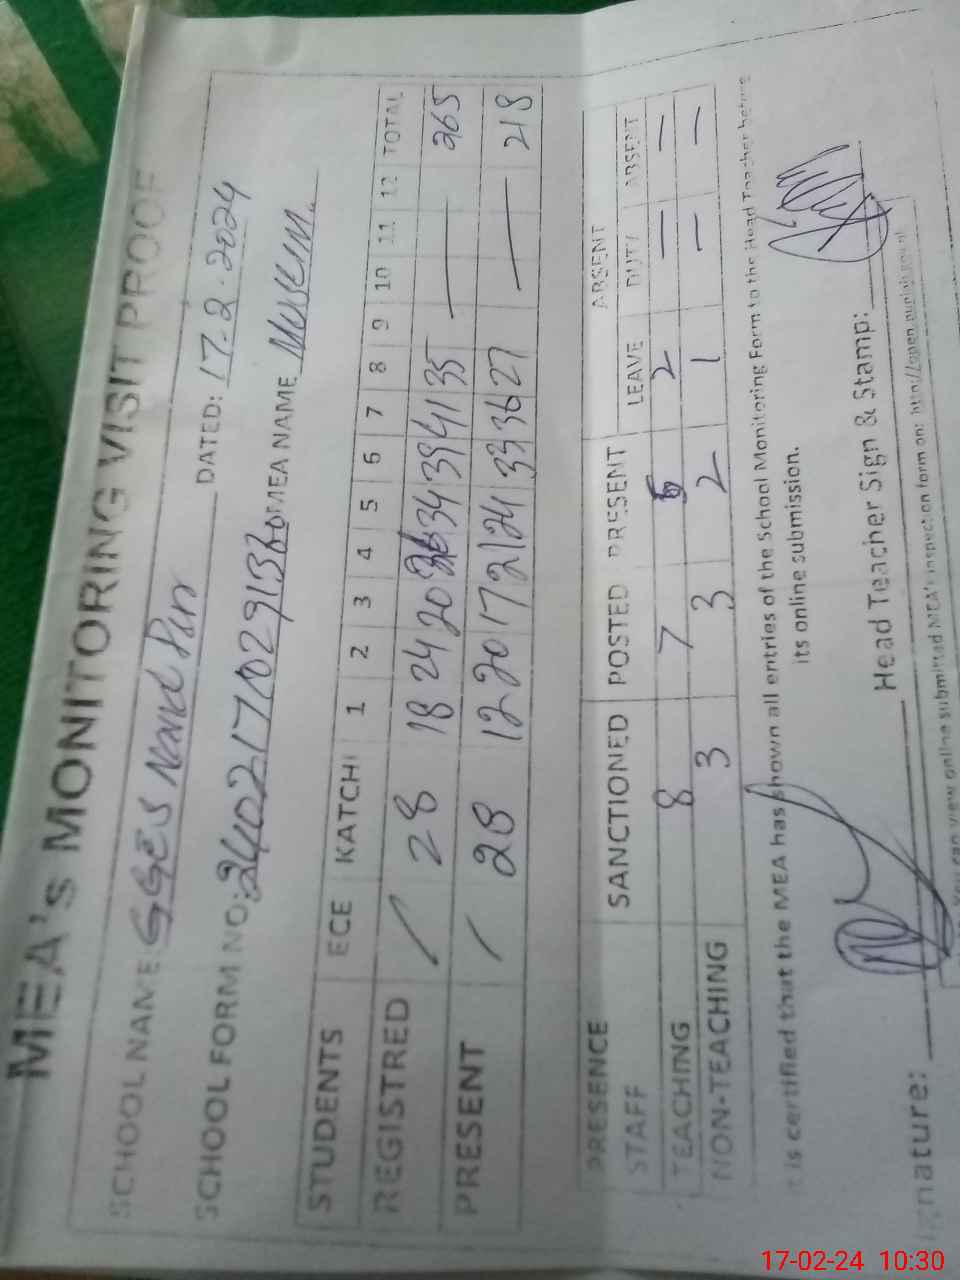 MEA's MONITORING VISIT PROOF
SCHOOL NAME: GGES Nand Pur DATED: 17-2-2024
SCHOOL FORM NO: MEA NAME
STUDENTS ECE KATCHI 1 2 3 4 5 6 7 8 9 10 11 12 TOTAL
REGISTRED / 28 18 24 20 26 34 39 41 35 — 265
PRESENT / 28 12 20 17 21 24 33 36 27 — 218
PRESENCE ABSENT
STAFF SANCTIONED POSTED PRESENT LEAVE DUTY ABSENT
TEACHING 8 7 5 2 — —
NON-TEACHING 3 3 2 1 — —
It is certified that the MEA has shown all entries of the School Monitoring Form to the Head Teacher before
its online submission.
ignature: Head Teacher Sign & Stamp:
You can view online submitted MEA's inspection form on: http://open.punjab.gov.pk
17-02-24 10:30